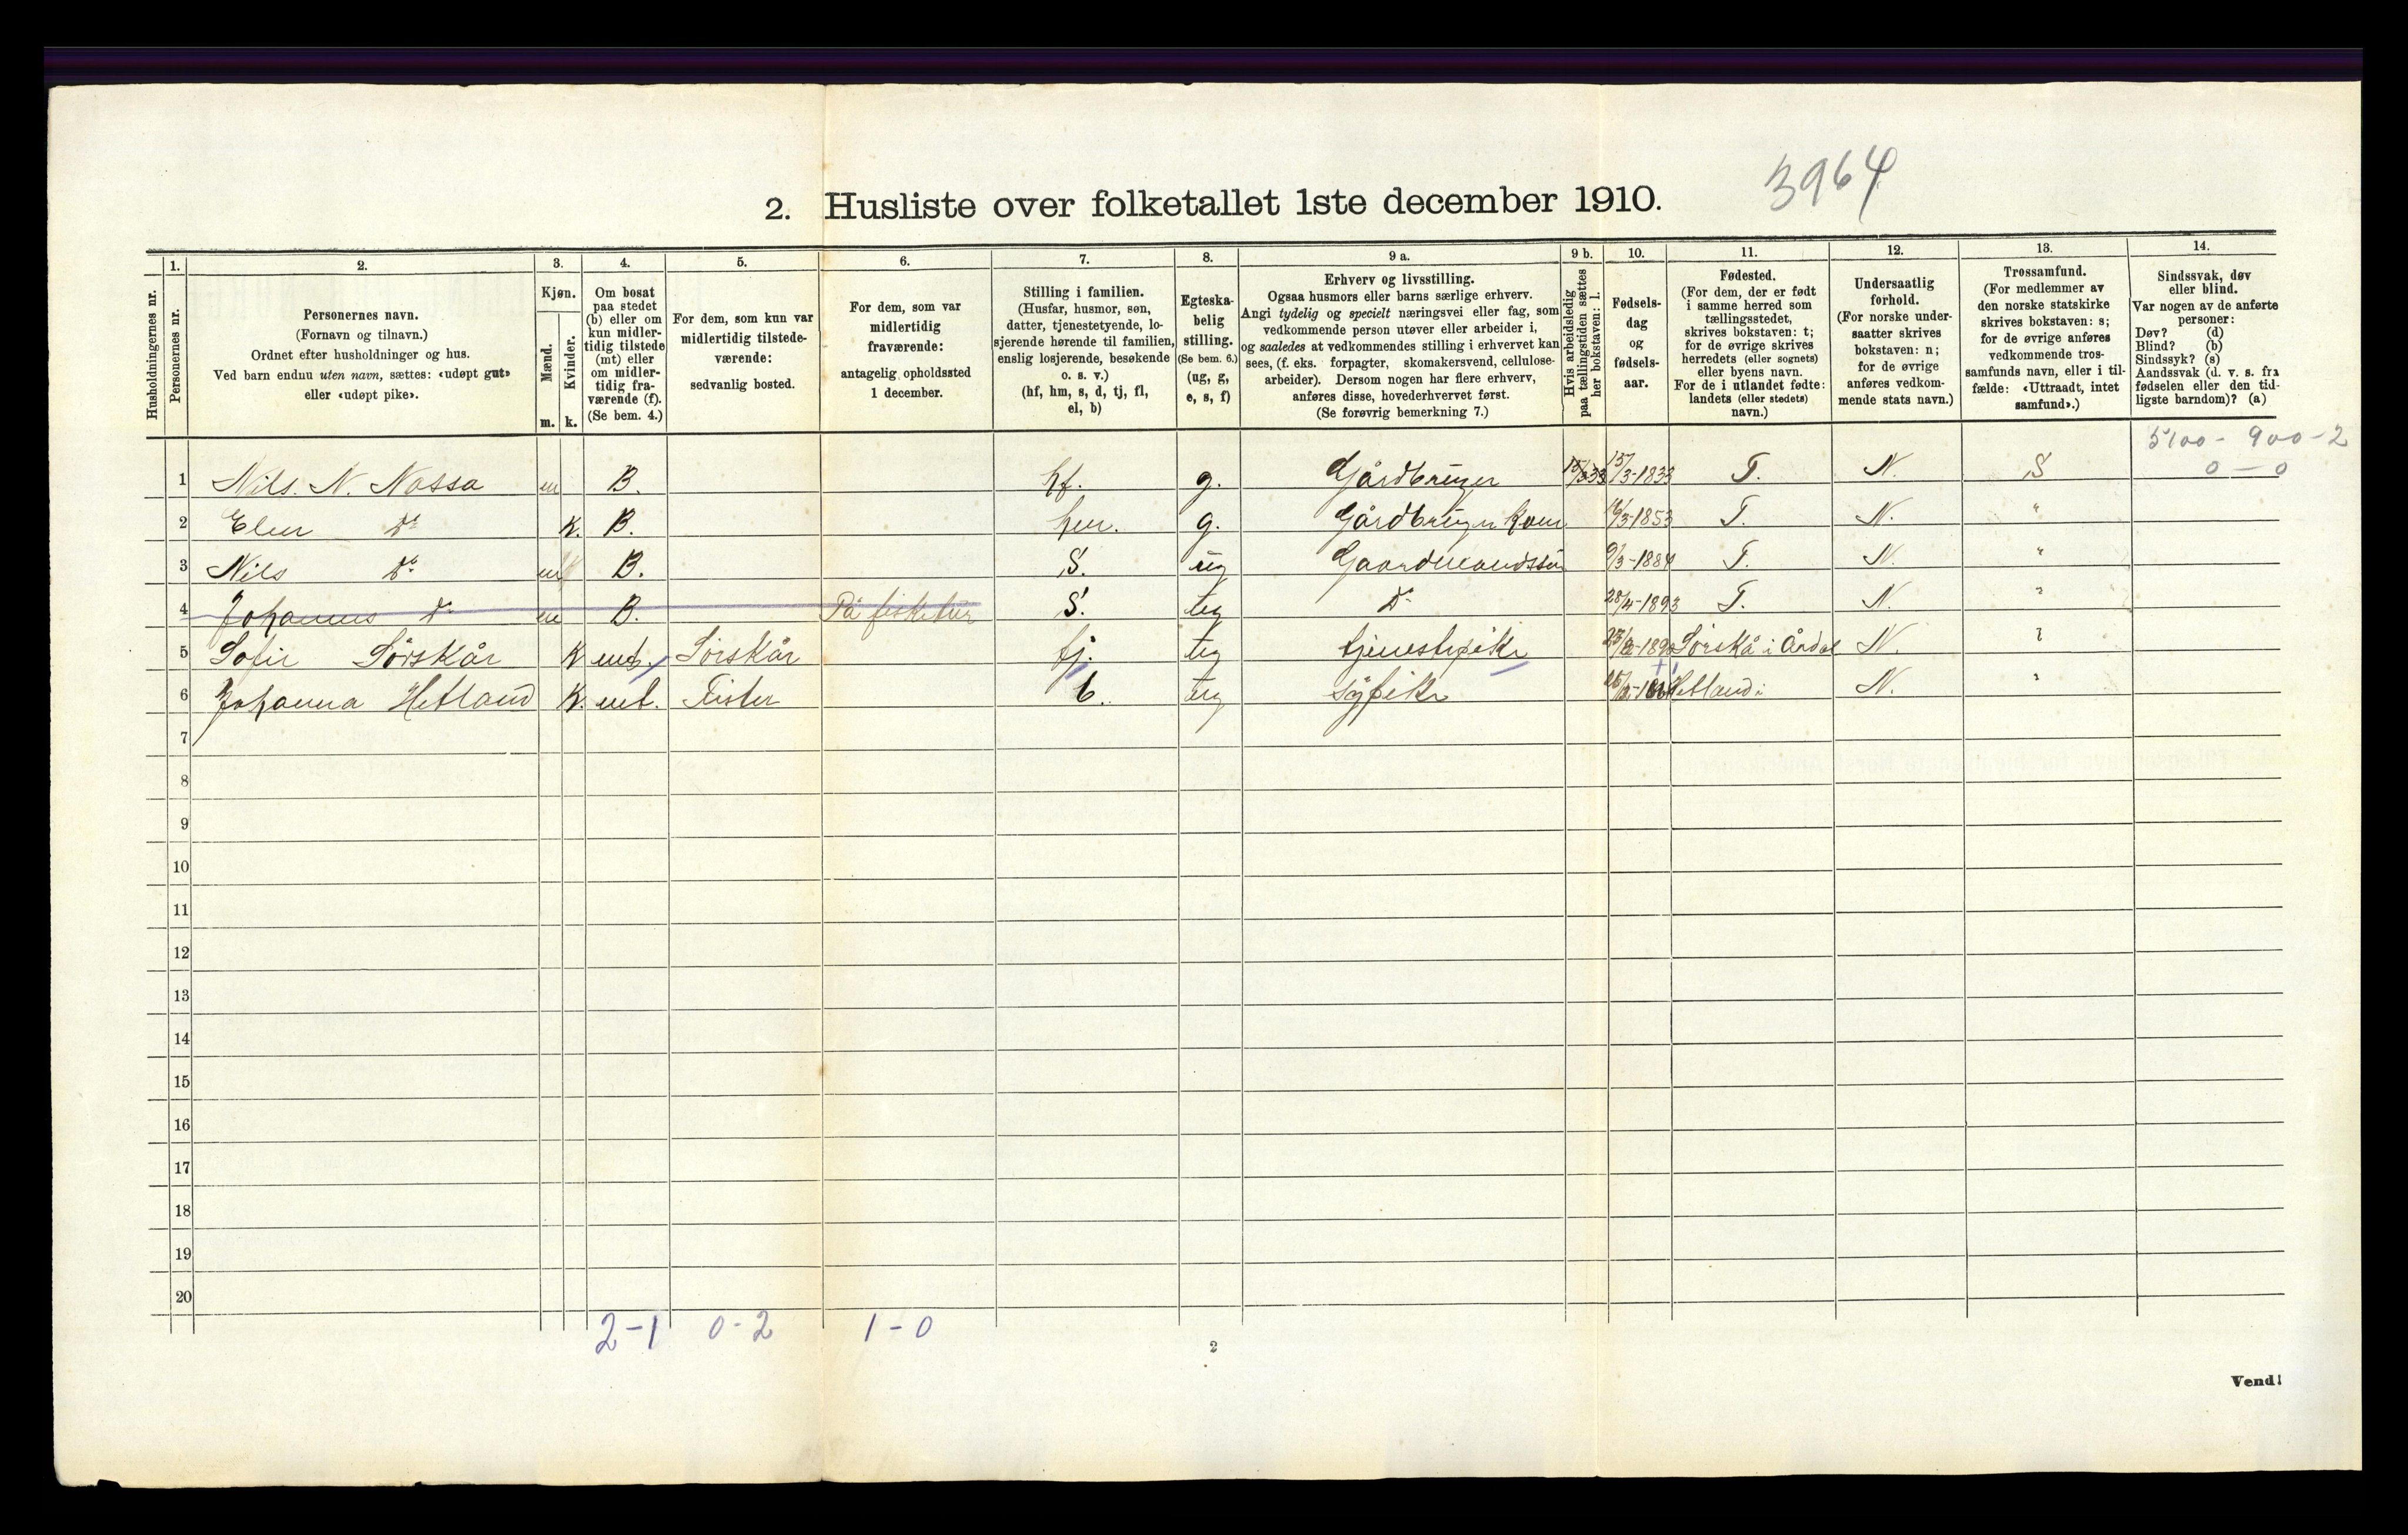 3964
2. Husliste over folketallet 1ste december 1910.
Husholdningernes nr.
1.
Personernes nr.
2.
Personernes navn.
(Fornavn og tilnavn.)
Ordnet efter husholdninger og hus.
Ved barn endnu uten navn, sættes: «udøpt gut»
eller «udøpt pike».
3.
Kjøn.
Mænd.
Kvinder.
m. k.
4.
Om bosat
paa stedet
(b) eller om
kun midler-
tidig tilstede
(mt) eller
om midler-
tidig fra-
værende (f).
(Se bem. 4.)
5.
For dem, som kun var
midlertidig tilstede-
værende:
sedvanlig bosted.
6.
For dem, som var
midlertidig
fraværende:
antagelig opholdssted
1 december.
7.
Stilling i familien.
(Husfar, husmor, søn,
datter, tjenestetyende, lo-
sjerende hørende til familien,
enslig losjerende, besøkende
o. s. v.)
(hf, hm, s, d, tj, fl,
el, b)
8.
Egteska-
belig
stilling.
(Se bem. 6.)
(ug, g,
e, s, f)
9 a.
Erhverv og livsstilling.
Ogsaa husmors eller barns særlige erhverv.
Angi tydelig og specielt næringsvei eller fag, som
vedkommende person utøver eller arbeider i,
og saaledes at vedkommendes stilling i erhvervet kan
sees, (f. eks. forpagter, skomakersvend, cellulose-
arbeider). Dersom nogen har flere erhverv,
anføres disse, hovederhvervet først.
(Se forøvrig bemerkning 7.)
9 b.
Hvis arbeidsledig
paa tællingstiden sættes
her bokstaven: l.
10.
Fødsels-
dag
og
fødsels-
aar.
11.
Fødested.
(For dem, der er født
i samme herred som
tællingsstedet,
skrives bokstaven: t;
for de øvrige skrives
herredets (eller sognets)
eller byens navn.
For de i utlandet fødte:
landets (eller stedets)
navn.)
12.
Undersaatlig
forhold.
(For norske under-
saatter skrives
bokstaven: n;
for de øvrige
anføres vedkom-
mende stats navn.)
13.
Trossamfund.
(For medlemmer av
den norske statskirke
skrives bokstaven: s;
for de øvrige anføres
vedkommende tros-
samfunds navn, eller i til-
fælde: «Uttraadt, intet
samfund».)
14.
Sindssvak, døv
eller blind.
Var nogen av de anførte
personer:
Døv? (d)
Blind? (b)
Sindssyk? (s)
Aandssvak (d. v. s. fra
fødselen eller den tid-
ligste barndom)? (a)
5100 - 900 - 2
0 - 0
1 Nils. N. Nassa m B. hf. g. Gårdbruger 15/3-1833 T. N. S
2 Elen do K. B. hm. g. Gårdbruger kone 16/3-1853 T. N. "
3 Nils do m B. S. ug Gaardmandssøn 9/3-1884 T. N. "
4 Johannes do m B. På fisketur S. ug do 28/4-1893 T. N. "
5 Sofie Sörskår K mt. Sörskår tj. ug tjenestepike Sörskå i Årdal N. "
6 Johanna Hetland K. mt. Fister b. ug sypike Hetland i N. "
7
8
9
10
11
12
13
14
15
16
17
18
19
20
2-1 0-2 1-0
2
Vend!